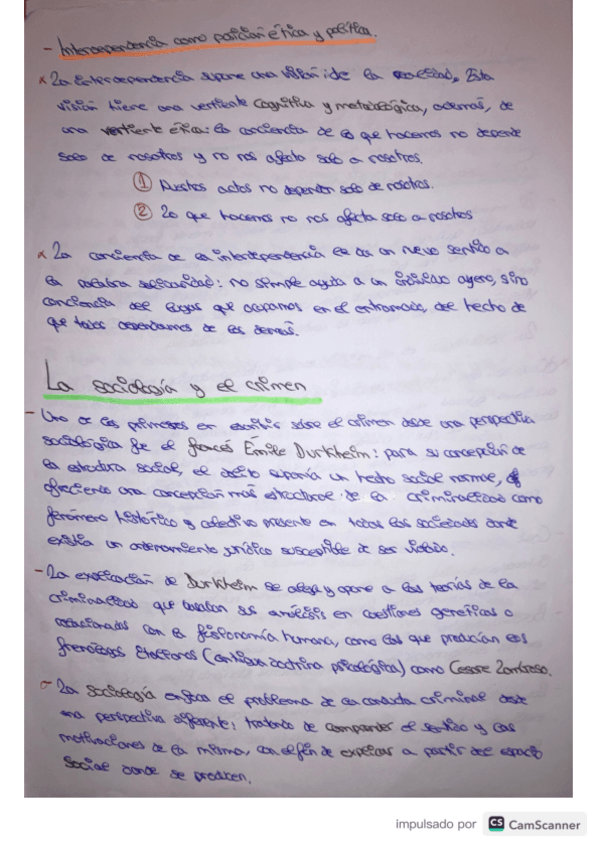 - Interdependencia como posición ética y política.
x La interdependencia supone una visión de la realidad. Esta
visión tiene una vertiente cognitiva y metodológica, además, de
una vertiente ética: la conciencia de lo que hacemos no depende
solo de nosotros y no nos afecta solo a nosotros.
① Nuestros actos no dependen solo de nosotros.
② Lo que hacemos no nos afecta solo a nosotros
x La conciencia de la interdependencia le da un nuevo sentido a
la palabra solidaridad: no simple ayuda a un individuo ajeno, sino
conciencia del lugar que ocupamos en el entramado, del hecho de
que todos dependamos de los demás.
La sociología y el crimen
- Uno de los primeros en escribir sobre el crimen desde una perspectiva
sociológica fue el francés Émile Durkheim: para su concepción de
la estructura social, el delito suponía un hecho social normal,
ofreciendo una concepción más estructural de la criminalidad como
fenómeno histórico y colectivo presente en todas las sociedades donde
existía un ordenamiento jurídico susceptible de ser violado.
- La explicación de Durkheim se aleja y opone a las teorías de la
criminalidad que basaban su análisis en cuestiones genéticas o
relacionadas con la fisionomía humana, como las que producían los
frenólogos (antigua doctrina psicológica) como Cesare Lombroso.
- La sociología enfoca el problema de la conducta criminal desde
una perspectiva diferente: tratando de comprender el sentido y las
motivaciones de la misma, con el fin de explicar a partir del espacio
social donde se producen.
impulsado por CS CamScanner